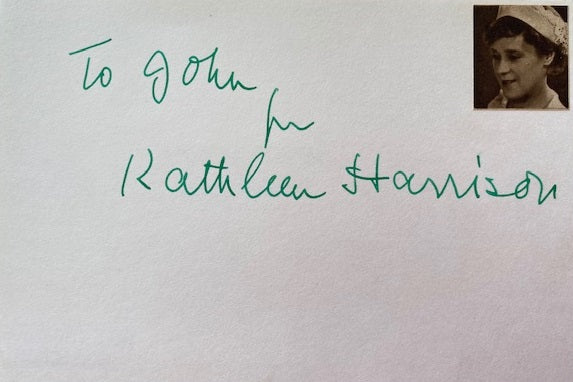 To John
fr
Kathleen Harrison